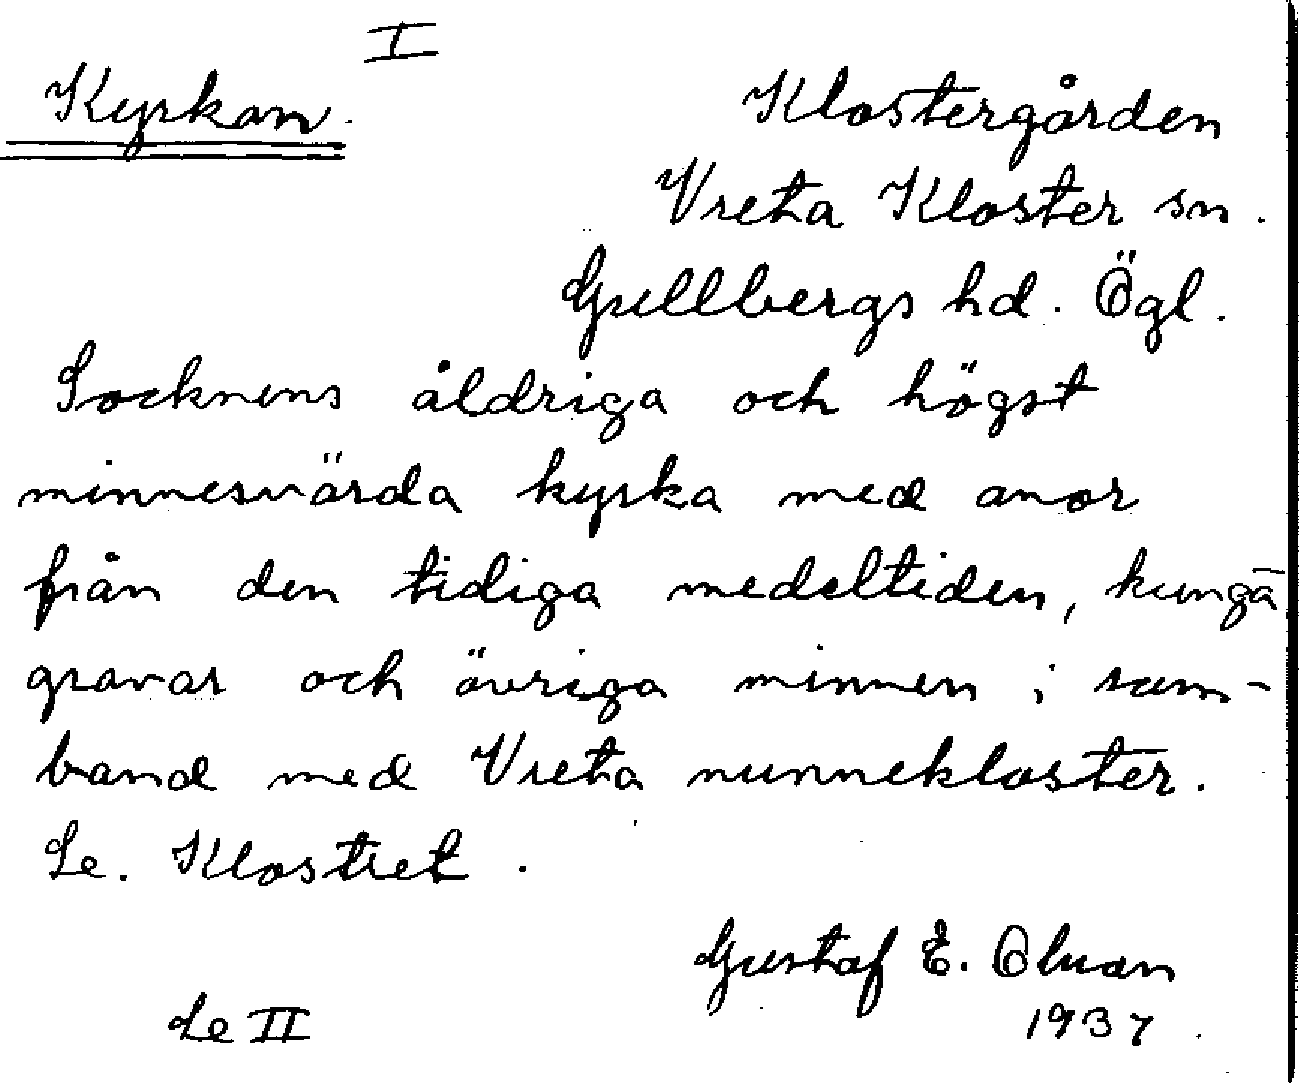 I
Kyrkan.
Klostergården
Vreta Kloster sn.
Gullbergs hd. Ögl.
Socknens åldriga och högst
minnesvärda kyrka med anor
från den tidiga medeltiden, kunga-
gravar och övriga minnen i sam-
band med Vreta nunnekloster.
Se. Klostret.
Gustaf E.
Se II
1937.